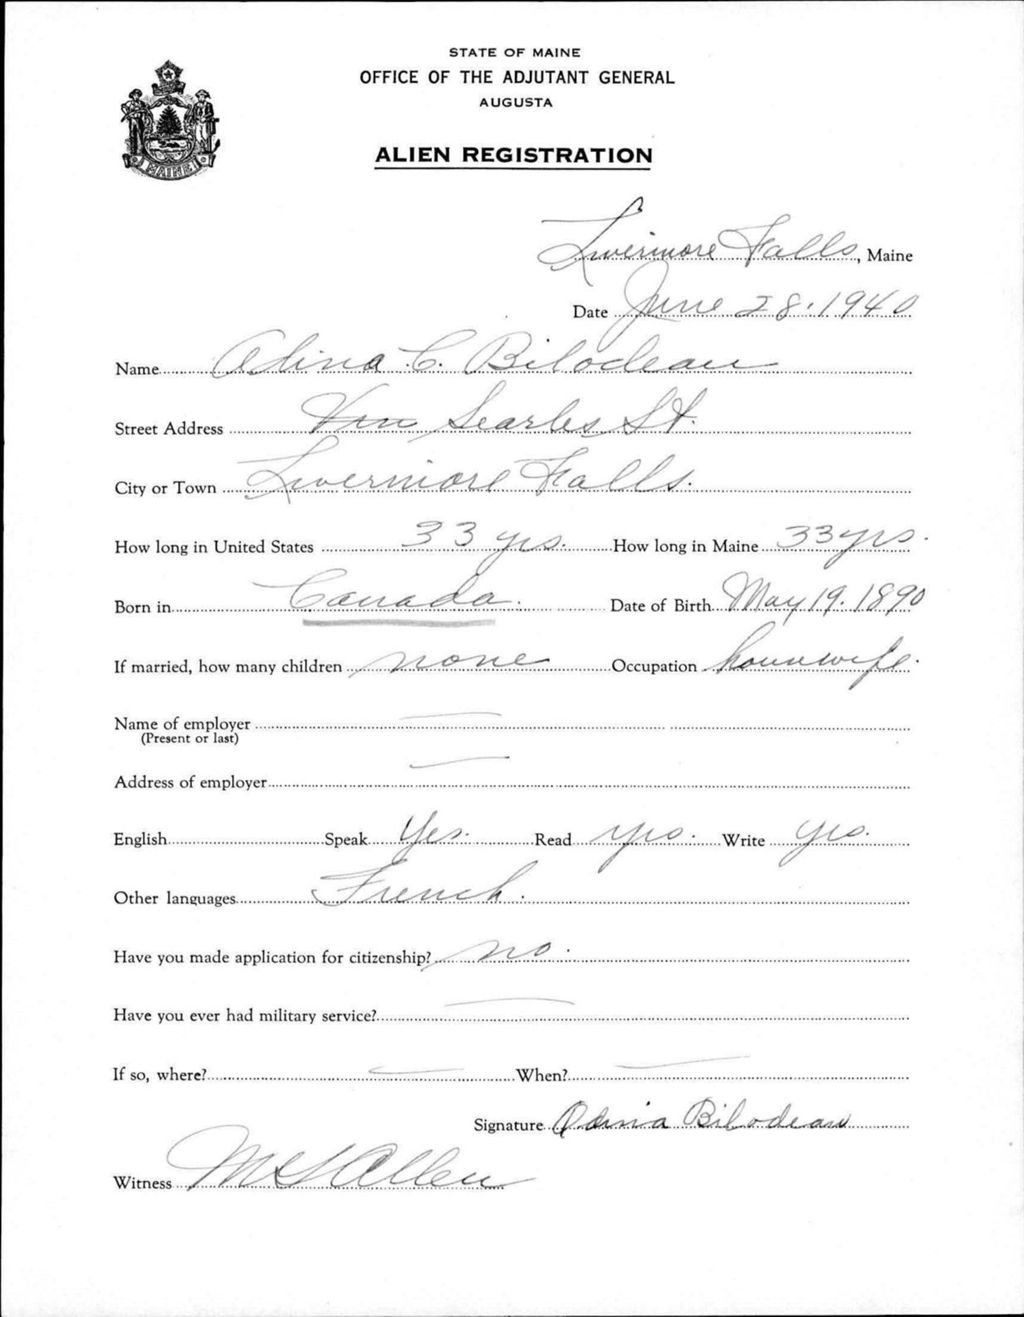 STATE OF MAINE
OFFICE OF THE ADJUTANT GENERAL
AUGUSTA
MAINE
ALIEN REGISTRATION
Livermore Falls, Maine
Date June 28. 1940
Name Adina C. Bilodeau
Street Address Searles St.
City or Town Livermore Falls.
How long in United States 33 yrs. How long in Maine 33 yrs.
Born in Canada. Date of Birth May 19. 1890
If married, how many children none Occupation housewife.
Name of employer —
(Present or last)
Address of employer —
English Speak Yes. Read yes. Write yes.
Other languages French.
Have you made application for citizenship? no.
Have you ever had military service? —
If so, where? — When? —
Signature Adina Bilodeau
Witness Allen